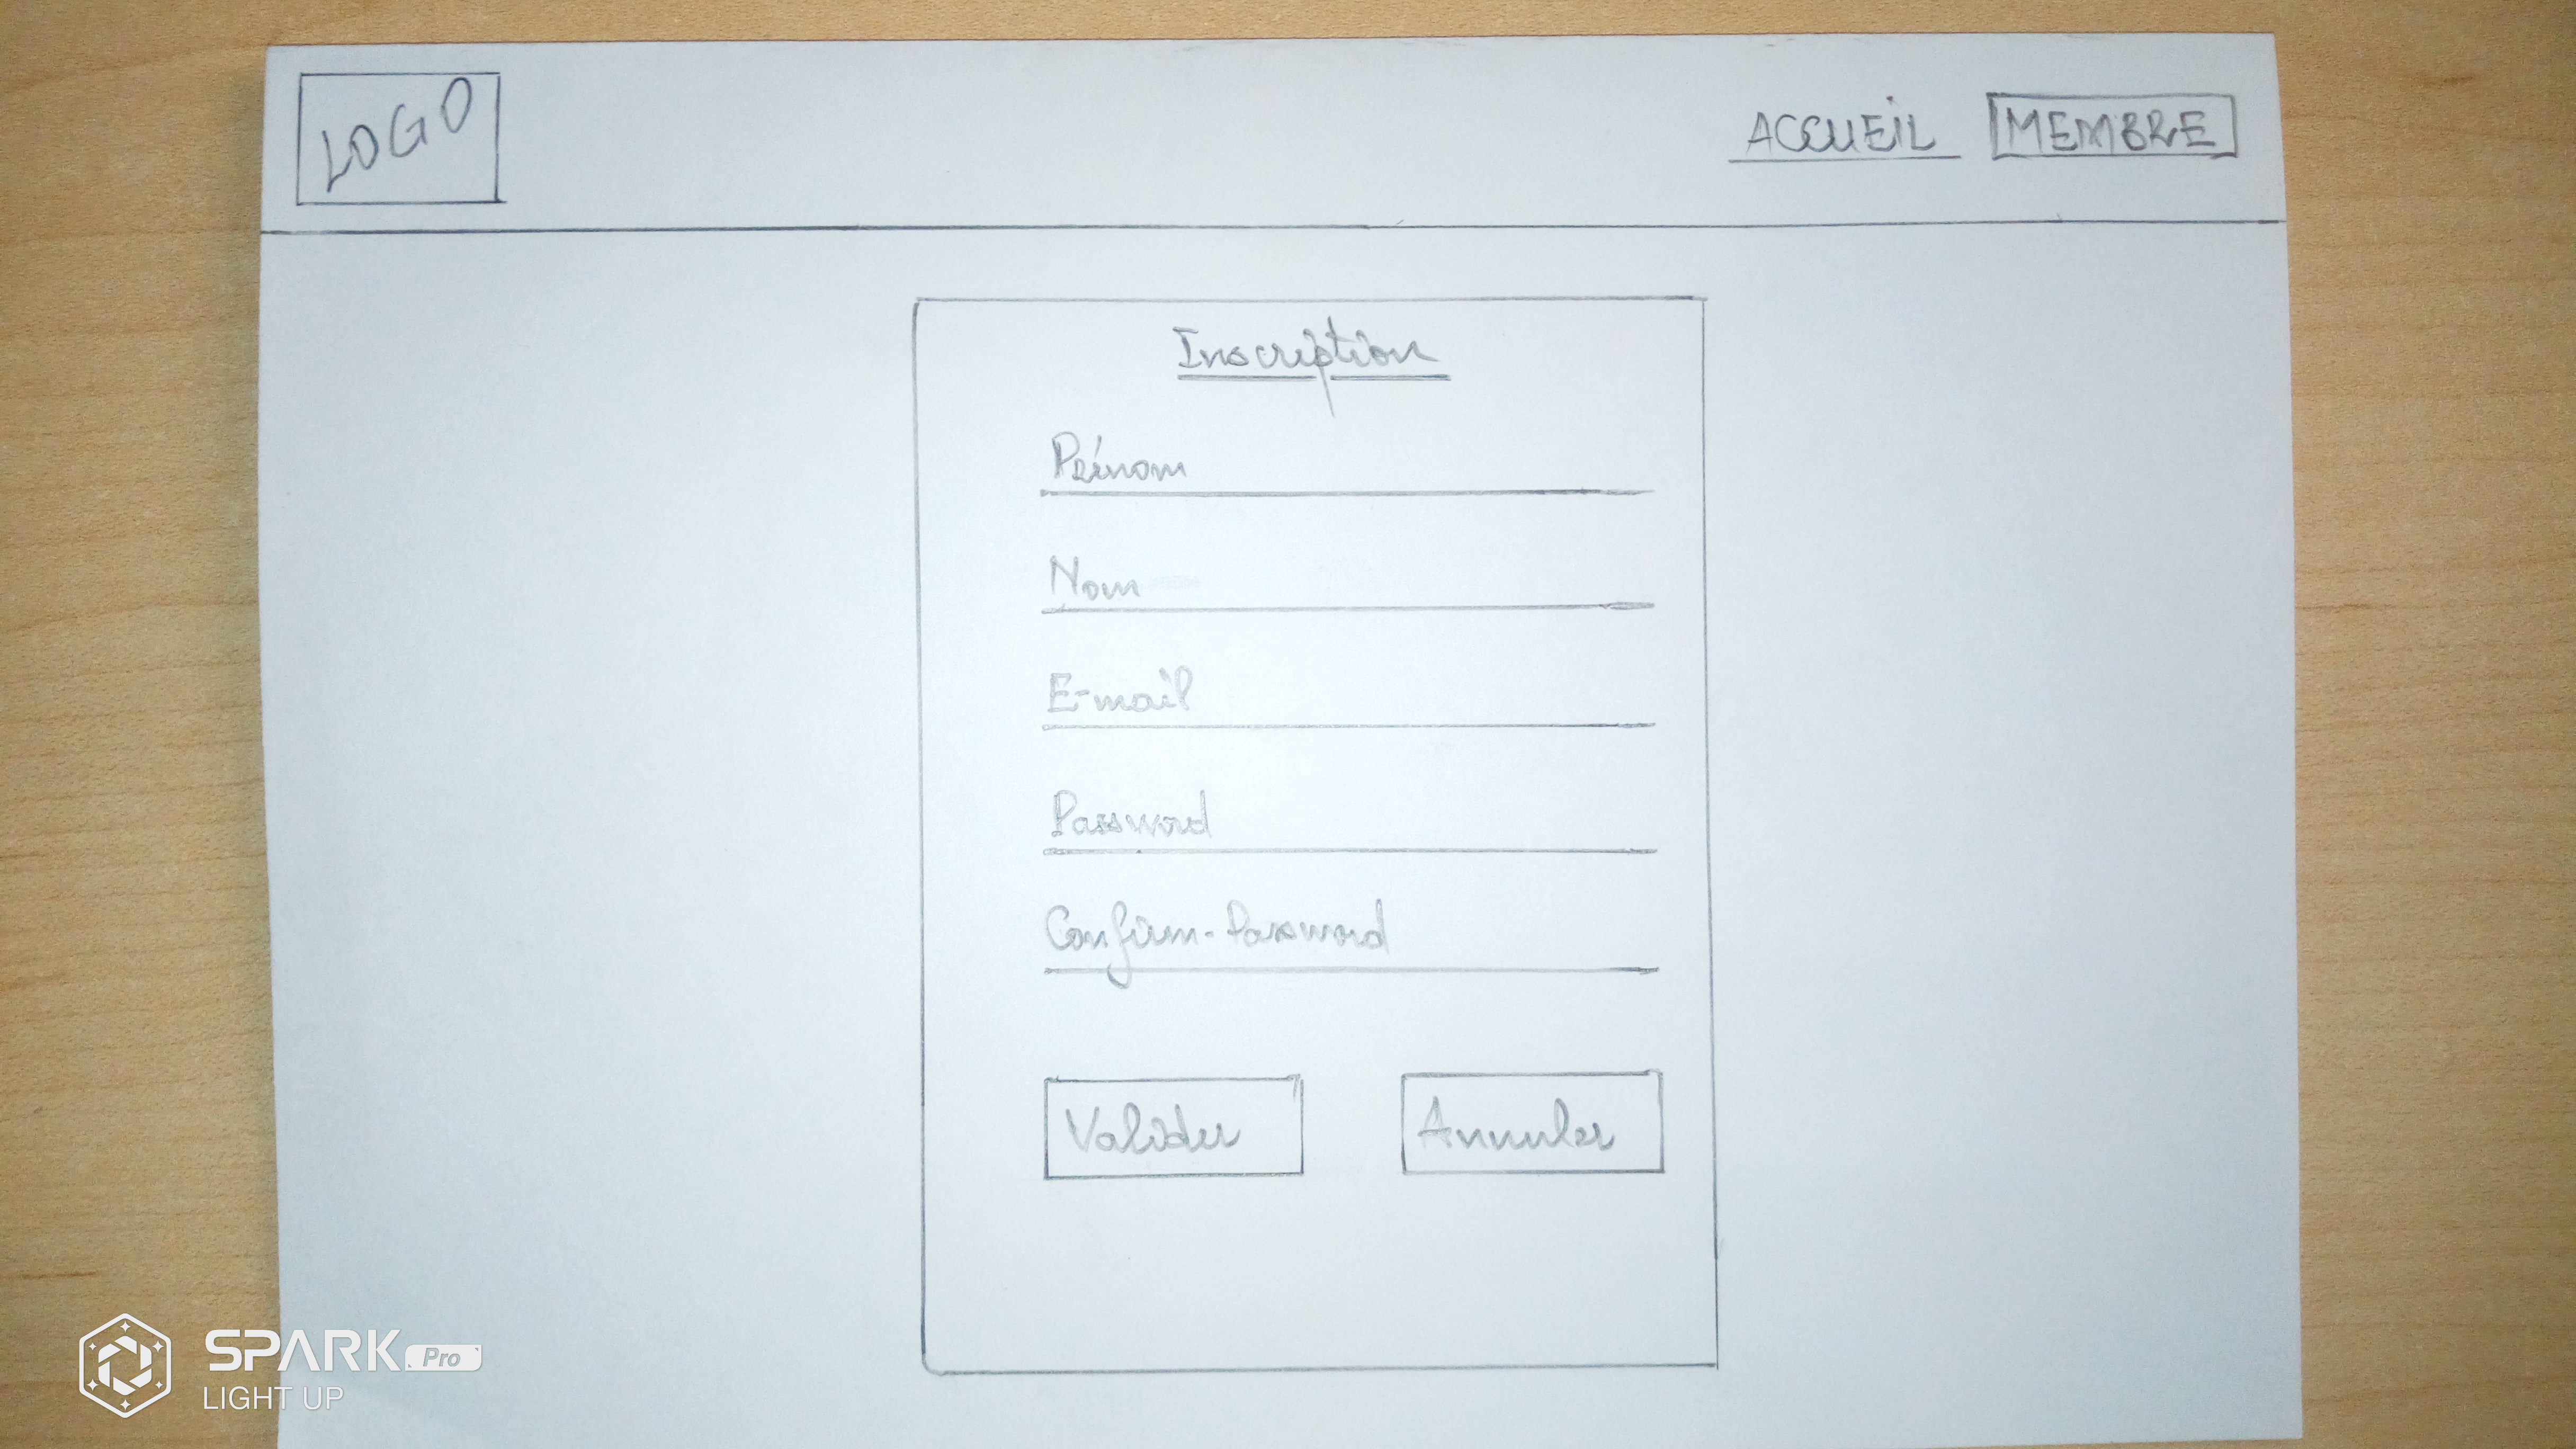 LOGO
ACCUEIL MEMBRE
Inscription
Prénom
Nom
E-mail
Password
Confirm-Password
Valider Annuler
SPARK Pro
LIGHT UP